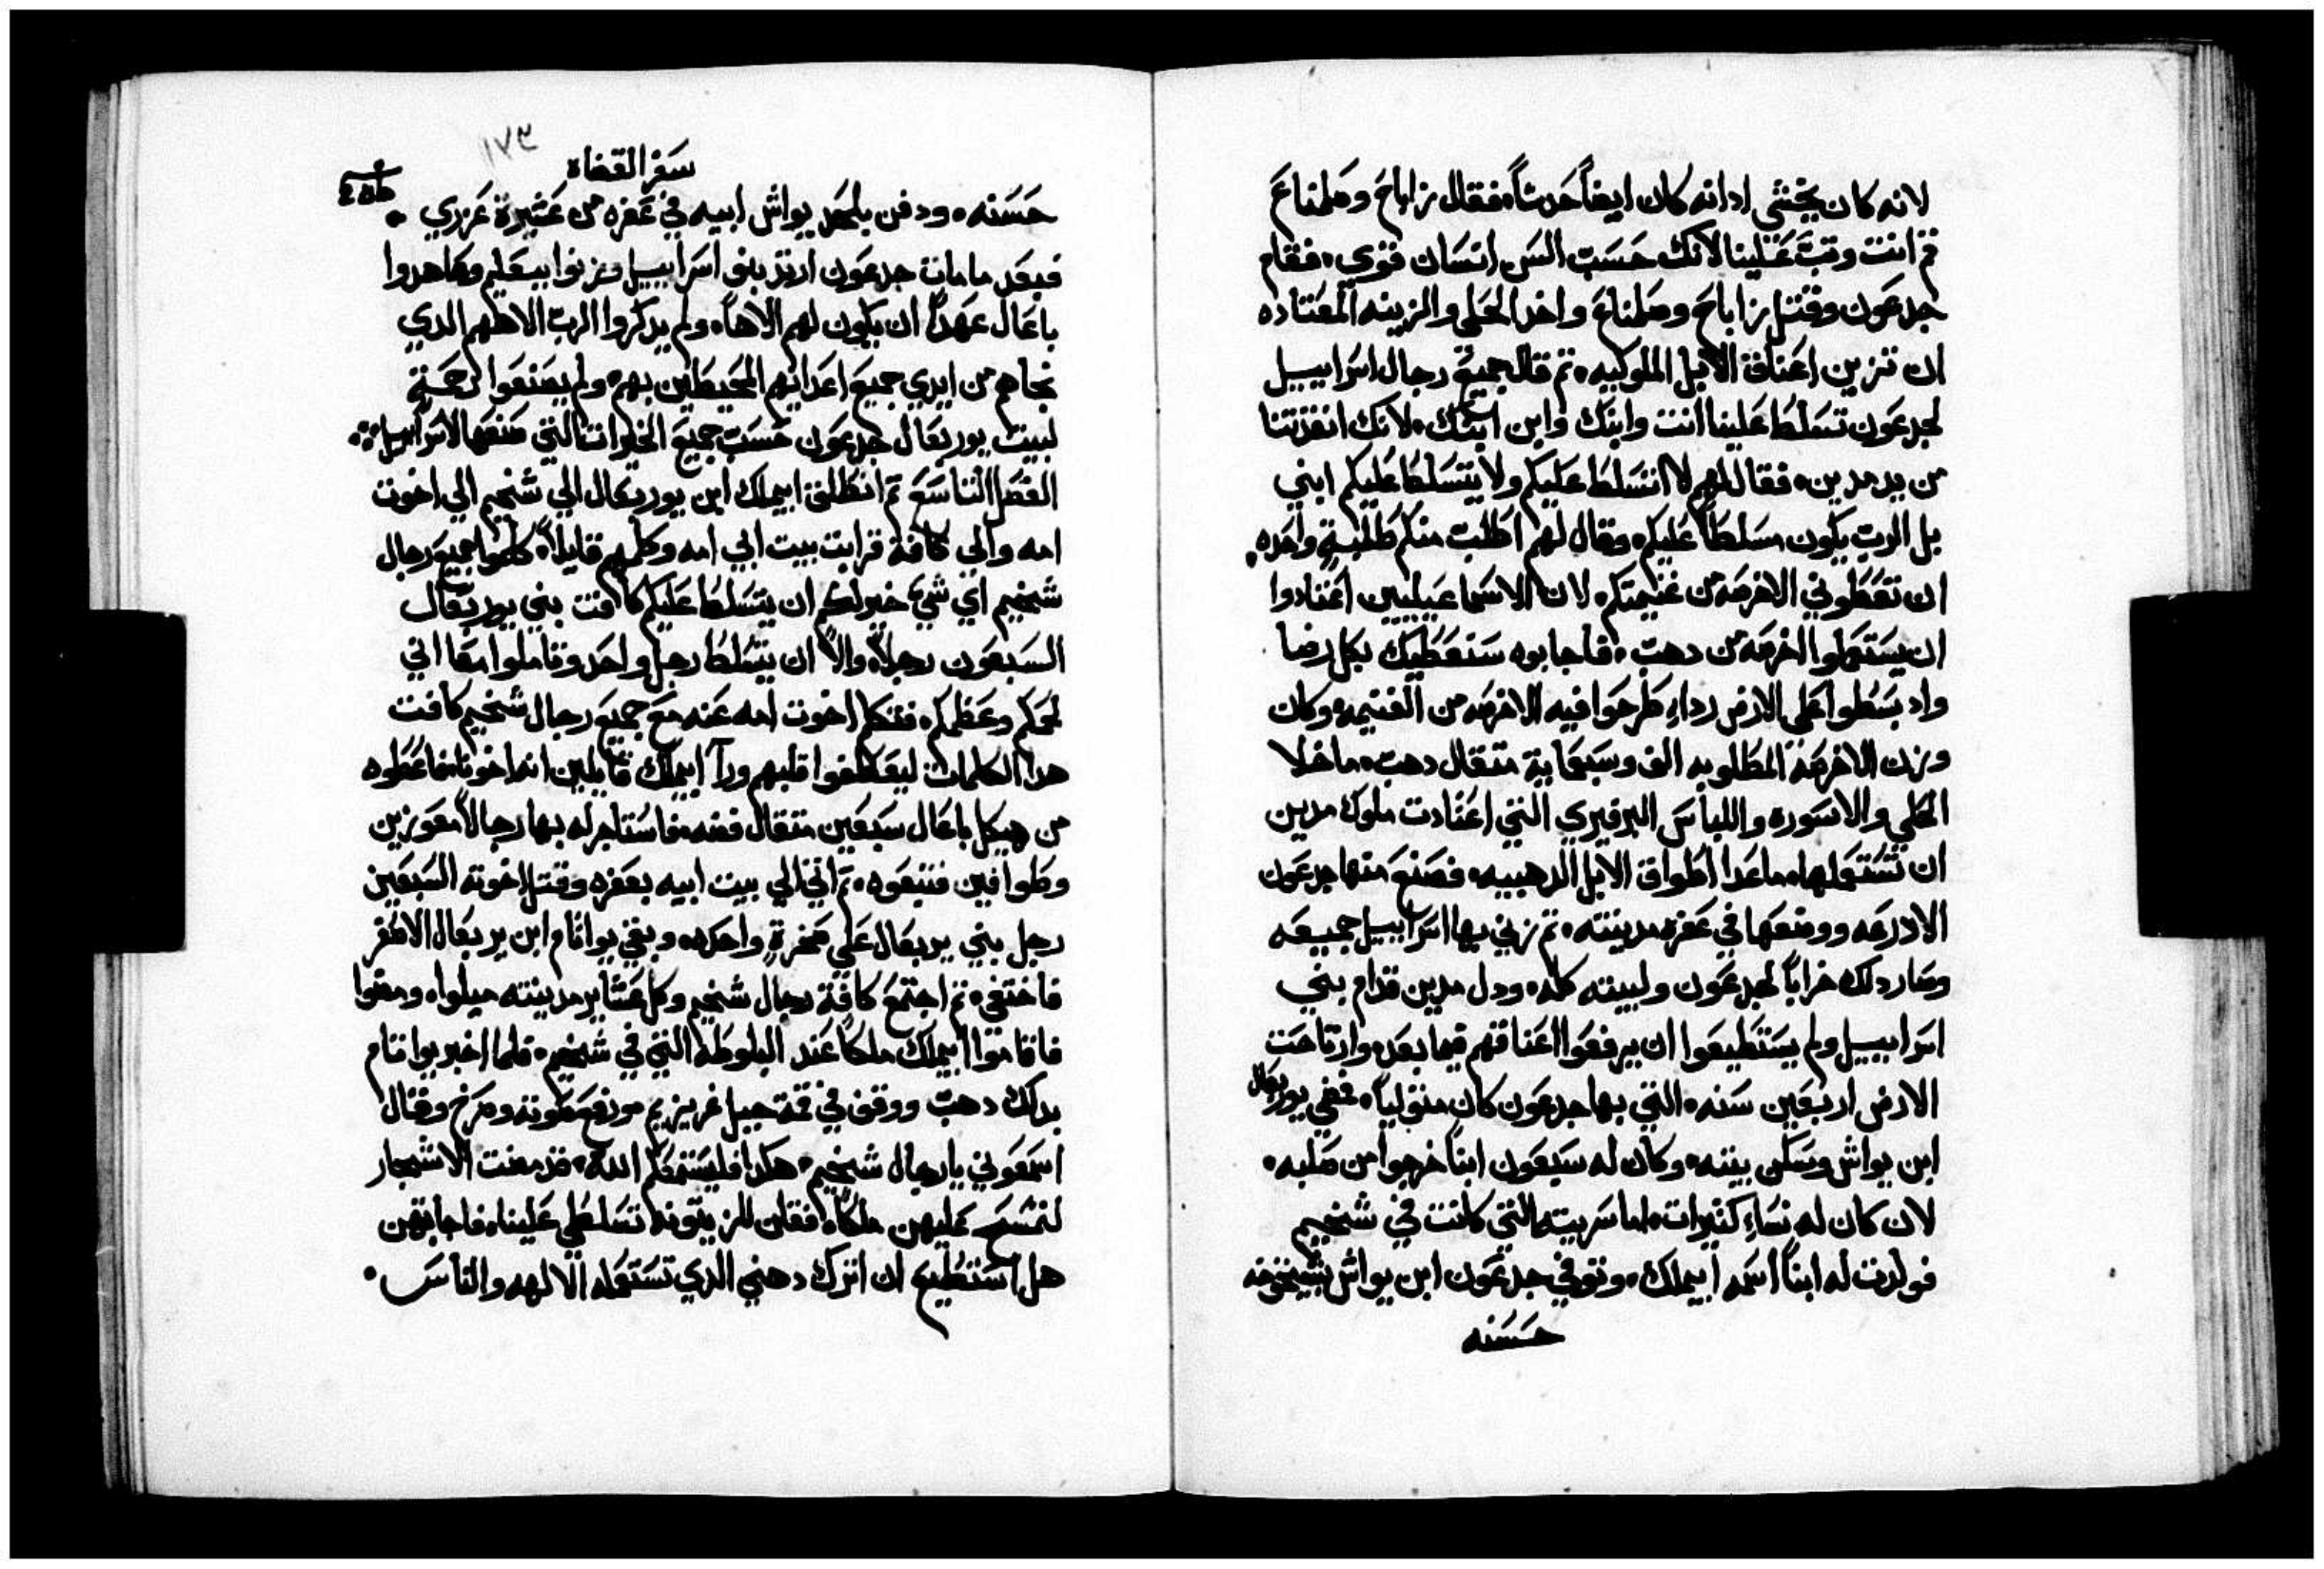 لانه كان يخشي ادانه كان ايضاً حدثاً. فقال زاباح وصلمناع
قم انت وقبَّ علينا لانك حسب السن انسان قوي. فقام
جدعون وقتل زاباح وصلمناع واخد الحلي والزينه المعتاده
ان تزين اعناق الابل الملوكيه. ثم قال جميع رجال اسراييل
لجدعون تسلط علينا انت وابنك وابن ابنك. لانك انقذتنا
من يد مدين. فقال لهم لا اتسلط عليكم ولا يتسلط عليكم ابني
بل الرب يكون مسلطاً عليكم. وقال لهم اطلب منكم طلبةٍ واحده.
ان تعطوني الاخرصه من غنيمتكم. لان الاسماعيليين اعتادوا
ان يستعملوا الاخرصه من دهب. فاجابوه سنعطيك بكل رضا
واد بسطوا علي الارض رداءٍ طرحوا فيه الاخرصه من الغنيمه. وكان
وزن الاخرصة المطلوبه الف وسبعماية متقال دهب. ماخلا
الحلي والاسوره واللباس البرفيري التي اعتادت ملوك مدين
ان تستعملها. ماعدا اطواق الابل الدهبييه. فصنع منها جدعون
الادرعه ووضعها في عفره مدينته. ثم زني بها اسراييل جميعه
وصار دلك خراباً لجدعون ولبيته كله. ودل مدين قدام بني
اسراييل ولم يستطيعوا ان يرفعوا اعناقهم فيما بعد. وارتاحت
الارض اربعين سنه. التي بها جدعون كان متولياً. فمضي يوربعال
ابن يواش وسكن بيته. وكان له سبعون ابناً خرجوا من صلبه.
لان كان له نساءٍ كتيرات. اما سريته التي كانت في شخيم
فولدت له ابناً اسمه ابيملك. وتوفي جدعون ابن يواش بشيخوخه
حسنه
١٧٣
سفر القضاه
حسنه. ودفن بلحد يواش ابيه في عفره من عشيرة عزري.
فبعد مامات جدعون ارتد بنو اسراييل وزنوا ببعليم وعاهدوا
باعال عهداً ان يكون لهم الاهاً. ولم يدكروا الرب الاههم الدي
نجاهم من ايدي جميع اعدايهم المحيطين بهم. ولم يصنعوا رحمةٍ
لبيت يوربعال جدعون حسب جميع الخيرات التي صنعها لاسراييل:.
الفصل التاسع ثم انطلق ابيملك ابن يوربعال الي شخيم الي اخوت
امه والي كافة قرابت بيت ابي امه وكلمهم قايلاً. كلموا جميع رجال
شخيم اي شيٍ خير لكم ان يتسلط عليكم كافت بني يوربعال
السبعون رجلاً. والاّ ان يتسلط رجل واحد وتاملوا معا اني
لحمكم وعظمكم. فتكلم اخوت امه عنه مع جميع رجال شخيم كافت
هدا الكلمات ليعطفوا قلبهم ورآ ابيملك قايلين انه اخونا. فاعطوه
من هيكل باعال سبعين متقال فضه. فاستاجر له بها رجالاً معوزين
وطوافين فتبعوه. ثم اتي الي بيت ابيه بعفره وقتل اخوته السبعين
رجل بني يربعال علي صخرةٍ واحده. وبقي يواتام ابن يربعال الاصغر
فاختفي. ثم اجتمع كافة رجال شخيم وكل عشاير مدينته ميلوا. ومضوا
فاقاموا ابيملك ملكاً عند البلوطه التي في شخيم. فلما اخبر يواتام
بدلك دهب ووقف في قمة جبل غريزيم ورفع صوته وصرخ وقال
اسمعوني يا رجال شخيم. هكدا فليستمعكم الله. قد مضت الاشجار
لتمسح عليهن ملكاً. فقلن للزيتونه تسلطي علينا. فاجابتهن
هل استطيع ان اترك دهني الدي تستعمله الالهه والناس.